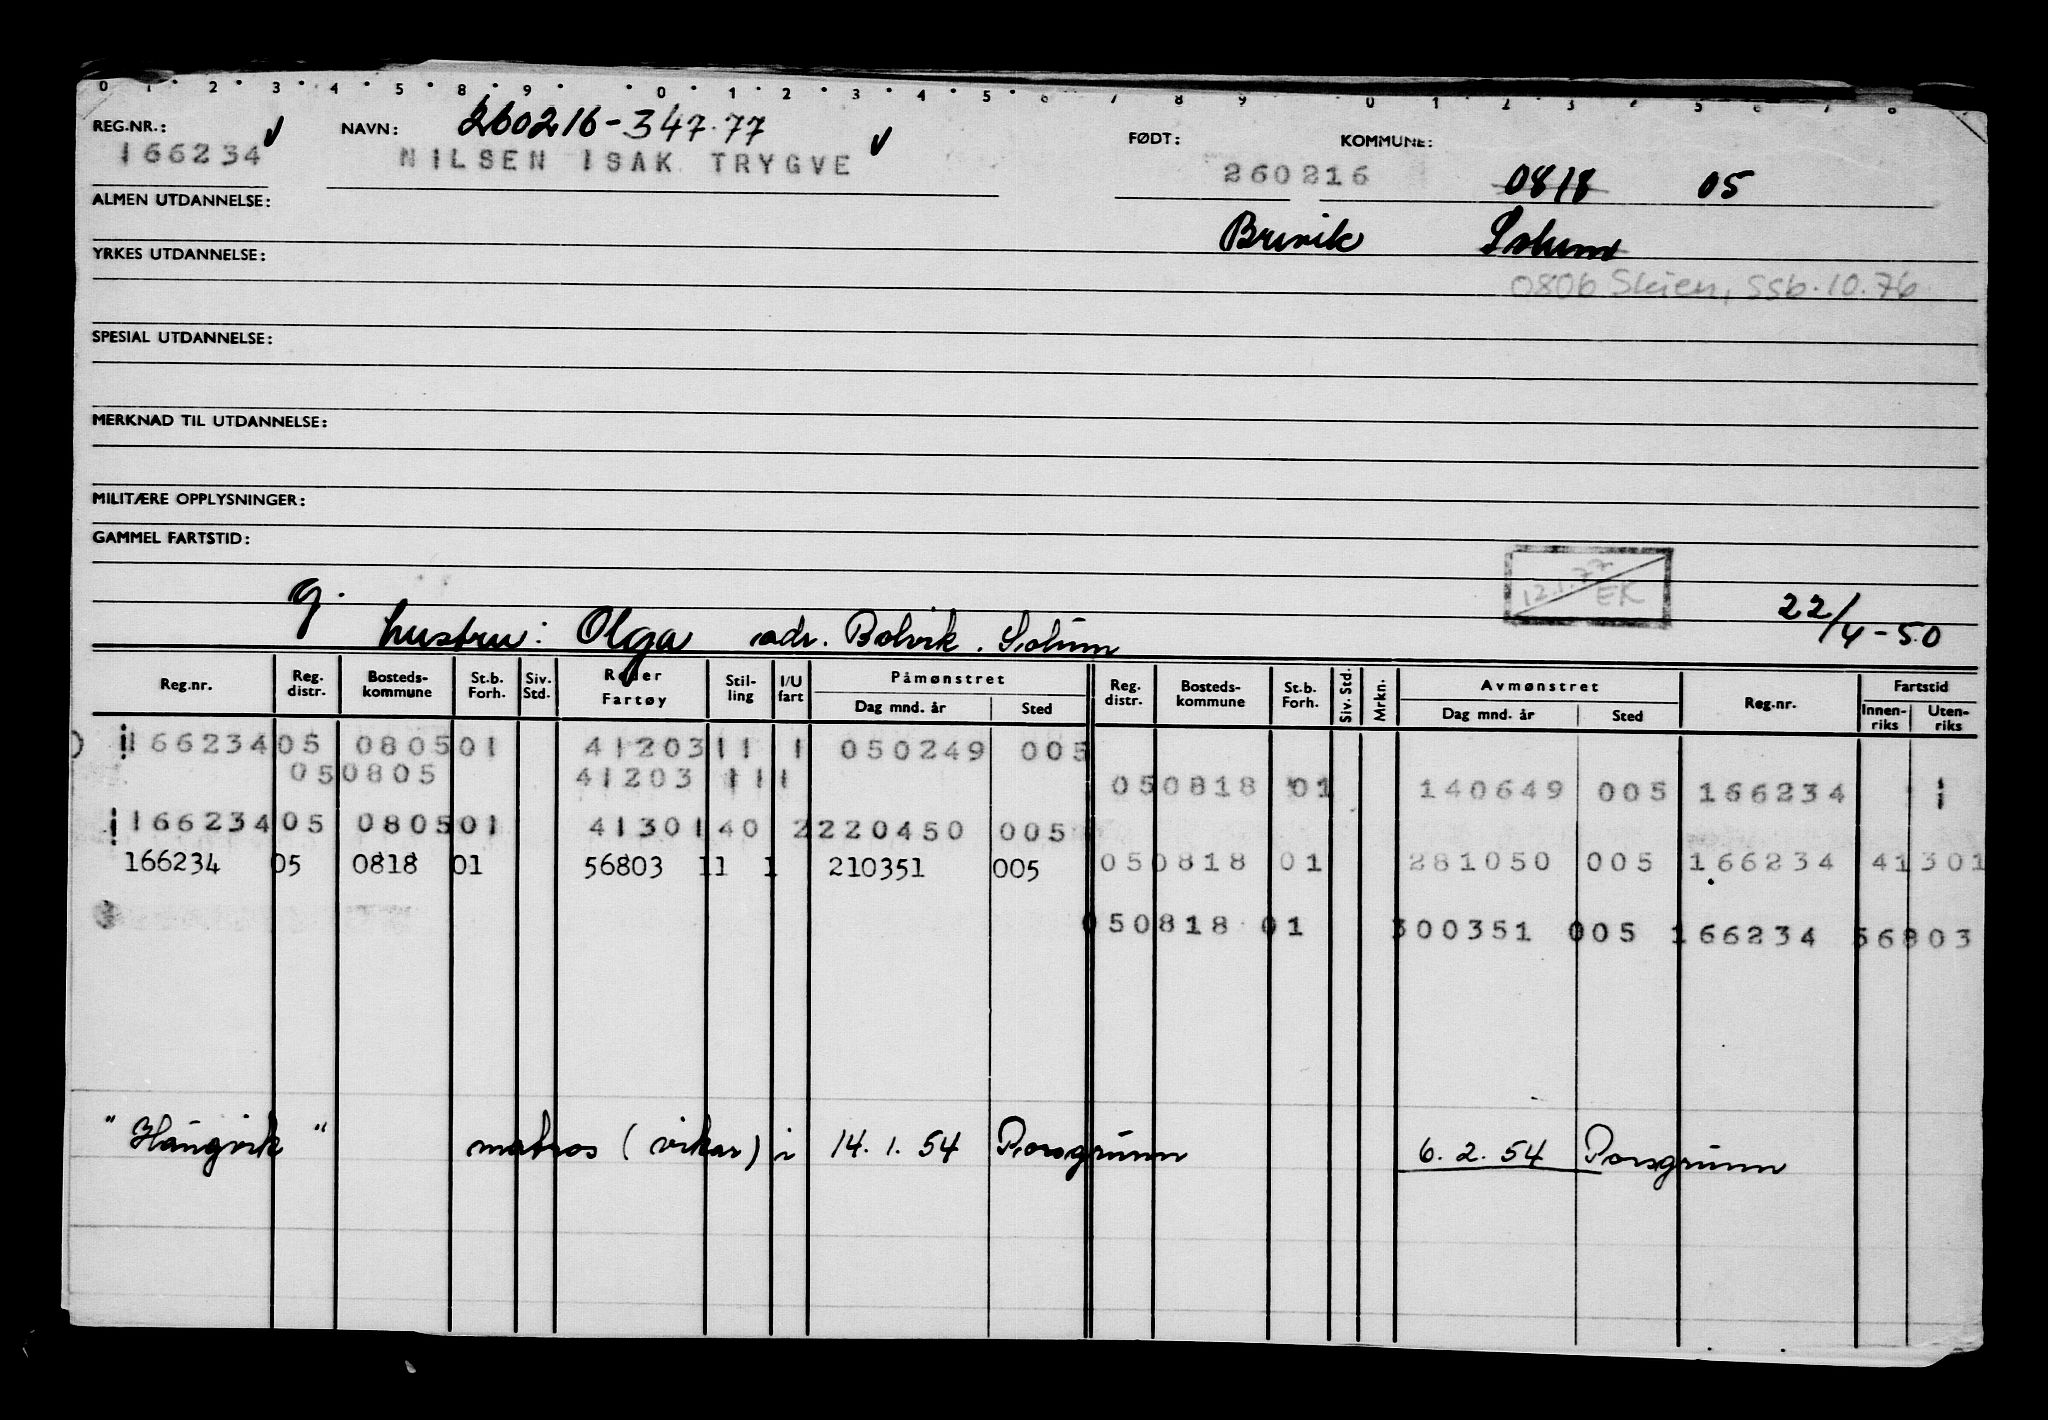 0 1 2 3 4 5 8 9 0 1 2 3 4 5 6 7 8 9 0 1 2 3 4 5 6 7 8
REG.NR.: NAVN: 260216-347.77 FØDT: KOMMUNE:
166234 NILSEN ISAK TRYGVE 260216 0818 05
ALMEN UTDANNELSE:
Brevik Solum
YRKES UTDANNELSE:
0806 Skien, SSb.10.76
SPESIAL UTDANNELSE:
MERKNAD TIL UTDANNELSE:
MILITÆRE OPPLYSNINGER:
GAMMEL FARTSTID:
12.1.77 EK
g. 22/4-50
hustru: Olga adr. Bolvik. Solum
Reg.nr. Reg. distr. Bosteds-kommune St.b. Forh. Siv. Std. Reder Fartøy Stil-ling I/U fart Påmønstret Dag mnd. år Sted Reg. distr. Bosteds-kommune St.b. Forh. Siv. Std. Mrkn. Avmønstret Dag mnd. år Sted Reg.nr. Fartstid Innen-riks Uten-riks
166234 05 0805 01 41203 11 1 050249 005
05 0805 41203 11 1 05 0818 01 140649 005 166234 1
166234 05 0805 01 41301 40 2 220450 005
166234 05 0818 01 56803 11 1 210351 005 05 0818 01 281050 005 166234 41301
05 0818 01 300351 005 166234 56803
"Haugvik" matros (vikar) i 14.1.54 Porsgrunn 6.2.54 Porsgrunn